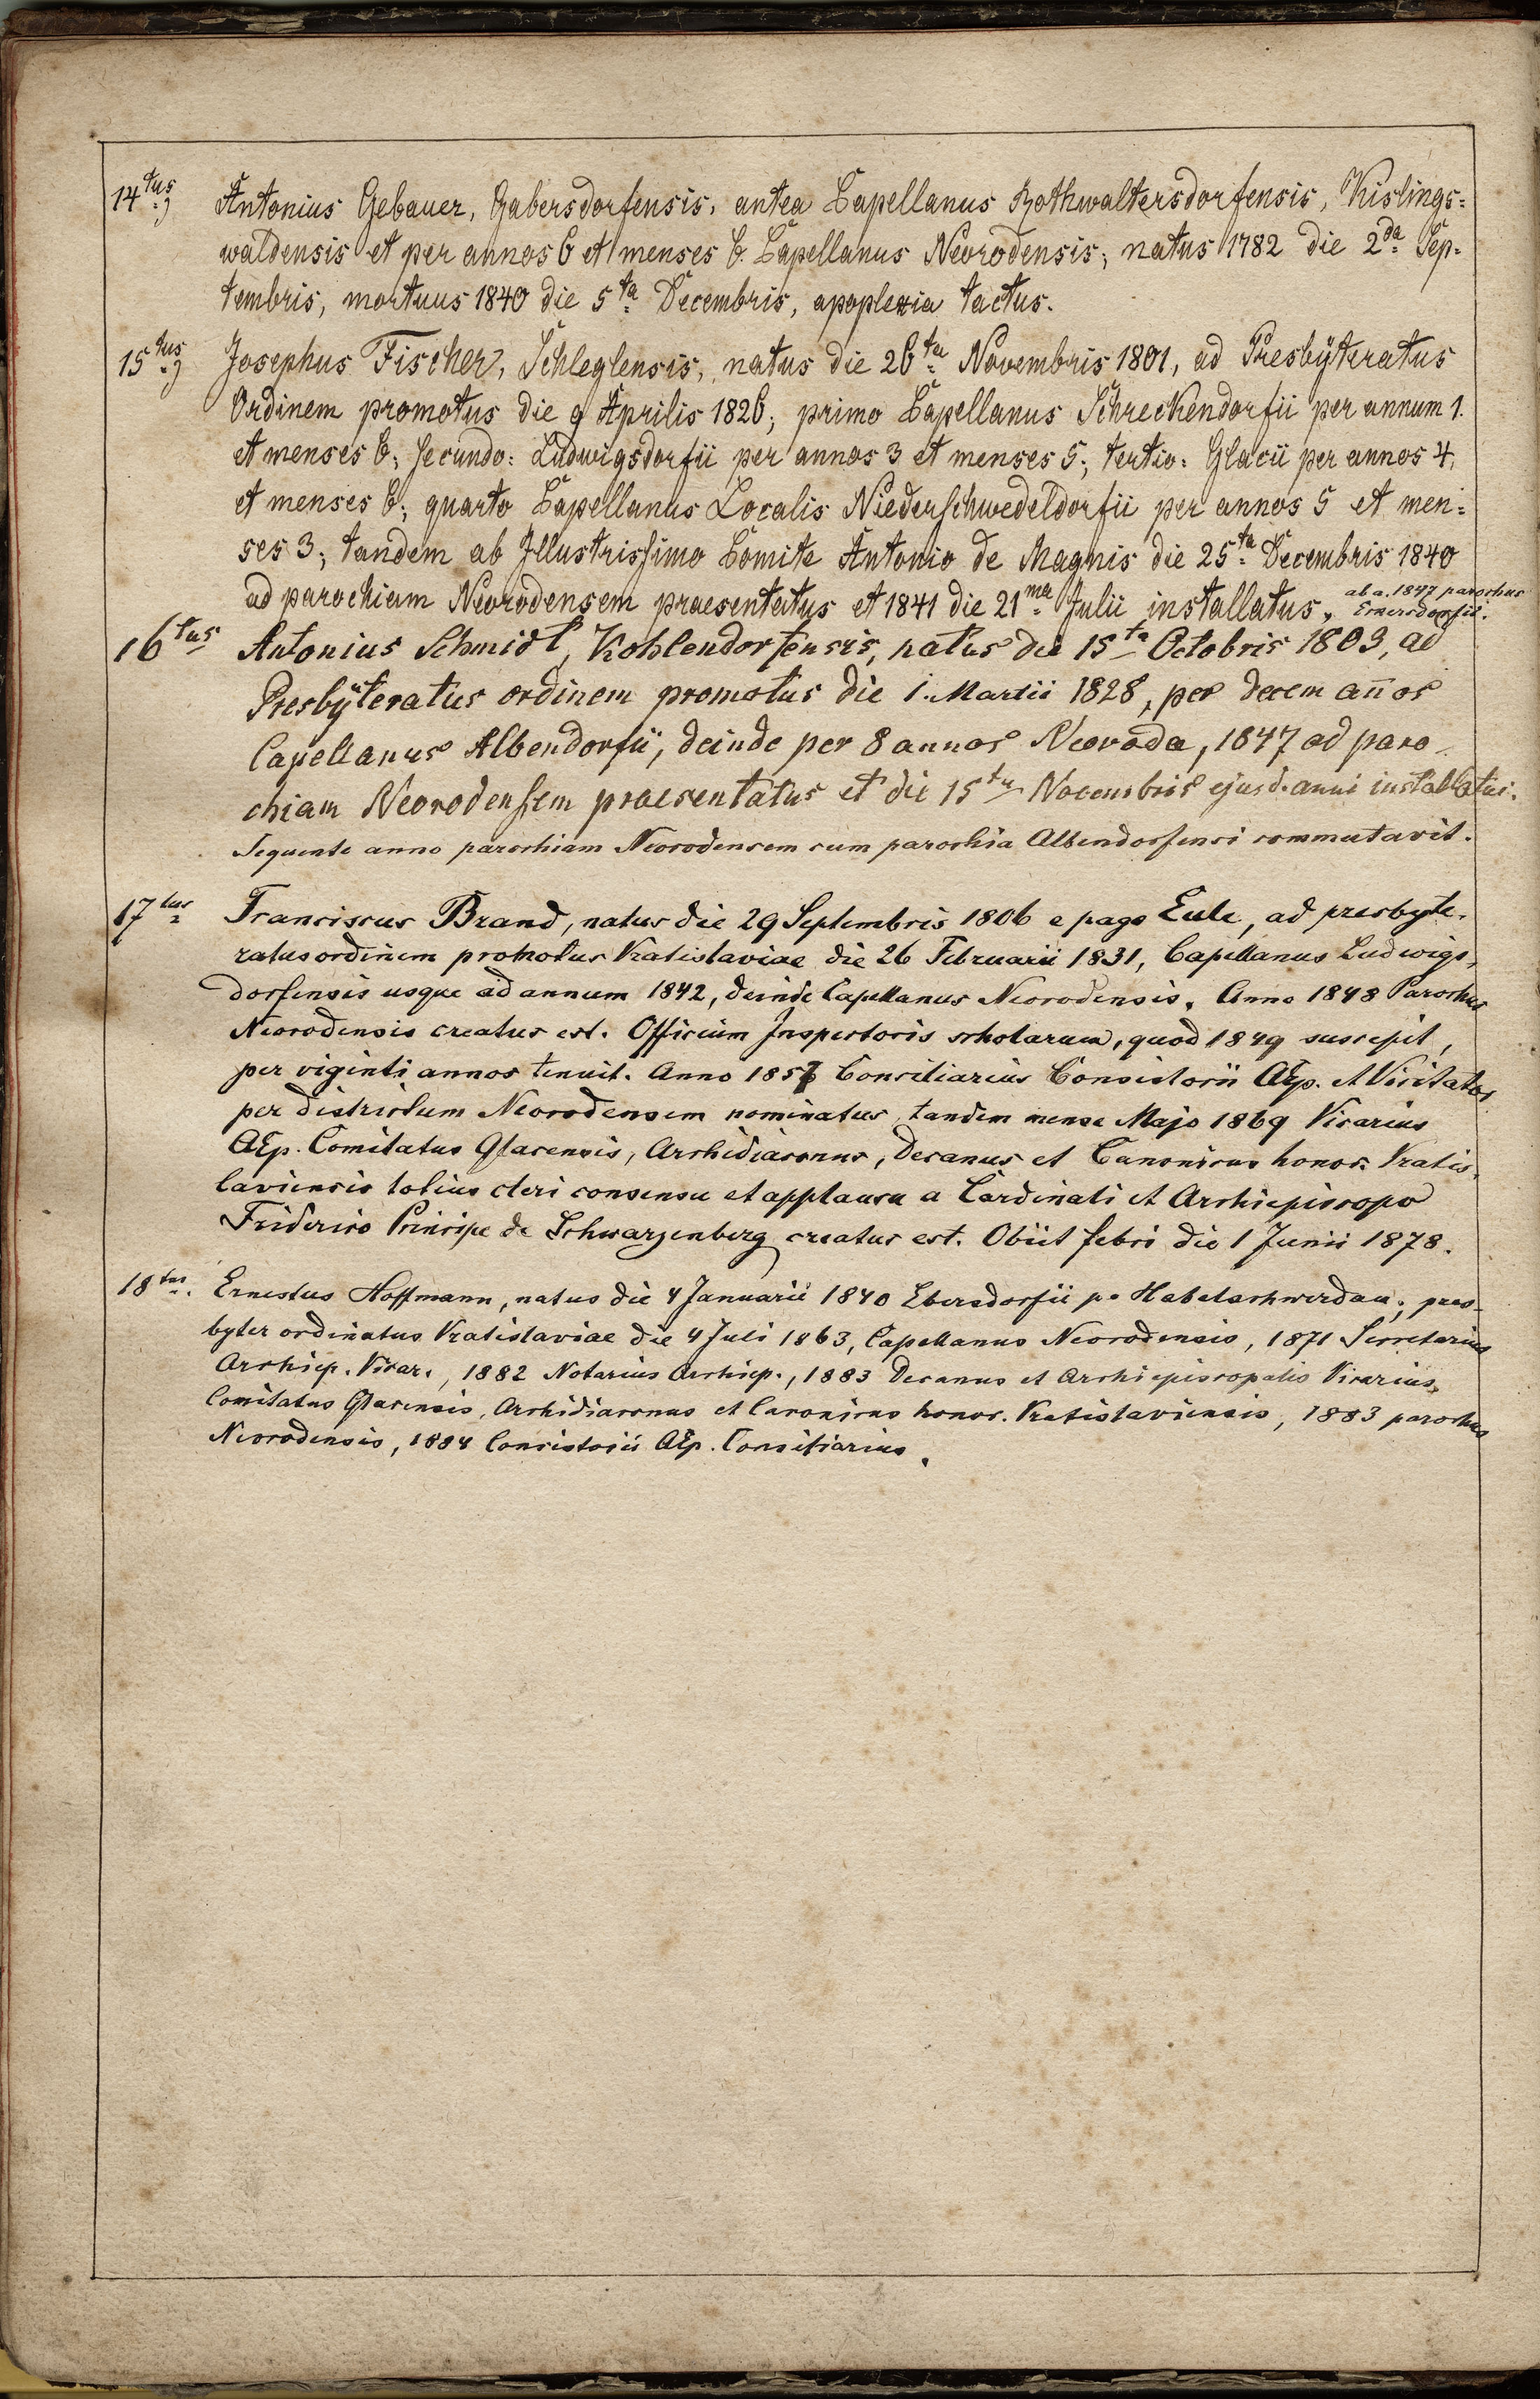 14tus) Antonius Gebauer, Gabersdorfensis, antea Capellanus Rothwaltersdorfensis, Kislings=
waldensis et per annos 6 et menses 6. Capellanus Neorodensis; natus 1782 die 2da Sep=
tembris, mortuus 1840 die 5ta Decembris, apoplexia tactus.
15tus) Josephus Fischer, Schleglensis, natus die 26ta Novembris 1801, ad Presbÿteratus
Ordinem promotus die 9 Aprilis 1826; primo Capellanus Schreckendorfii per annum 1.
et menses 6; secundo: Ludwigsdorfii per annos 3 et menses 5; tertio: Glacii per annos 4,
et menses 6; quarto Capellanus Localis Niederschwedeldorfii per annos 5 et men=
ses 3; tandem ab Illustrissimo Comite Antonio de Magnis die 25ta Decembris 1840
ad parochiam Neorodensem praesentatus et 1841 die 21ma Julii installatus, ab a. 1847 parochus
Ebersdorfii.
16tus Antonius Schmidt, Kohlendorfensis, natus die 15ta Octobris 1803, ad
Presbÿteratus ordinem promotus die 1. Martii 1828, per decem an̄os
Capellanus Albendorfii, deinde per 8 annos Neoroda, 1847 ad paro-
chiam Neorodensem praesentatus et die 15ta Novembris ejusd. anni installatus.
Sequente anno parochiam Neorodensem cum parochia Albendorfensi commutavit.
17tus Franciscus Brand, natus die 29 Septembris 1806 e pago Eule, ad presbyte-
ratus ordinem promotus Vratislaviae die 26 Februarii 1831, Capellanus Ludwigs-
dorfensis usque ad annum 1842, deinde Capellanus Neorodensis. Anno 1848 Parochus
Neorodensis creatus est. Officium Inspectoris scholarum, quod 1849 suscepit,
per viginti annos tenuit. Anno 1857 Consiliarius Consistorii AEp. et Visitator
per districtum Neorodensem nominatus, tandem mense Majo 1869 Vicarius
AEp. Comitatus Glacensis, Archidiaconus, Decanus et Canonicus honor. Vratis-
laviensis totius cleri consensu et applausu a Cardinali et Archiepiscopo
Friderico Principe de Schwarzenberg creatus est. Obiit febri die 1 Junii 1878.
18tus. Ernestus Hoffmann, natus die 4 Januarii 1840 Ebersdorfii pr Habelschwerdau; pres-
byter ordinatus Vratislaviae die 4 Juli 1863, Capellanus Neorodensis, 1871 Secretarius
Archiep. Vicar., 1882 Notarius Archiep., 1883 Decanus et Archiepiscopalis Vicarius,
Comitatus Glacensis, Archidiaconus et Canonicus honor. Vratislaviensis, 1883 parochus
Neorodensis, 1884 Consistorii AEp. Consiliarius.